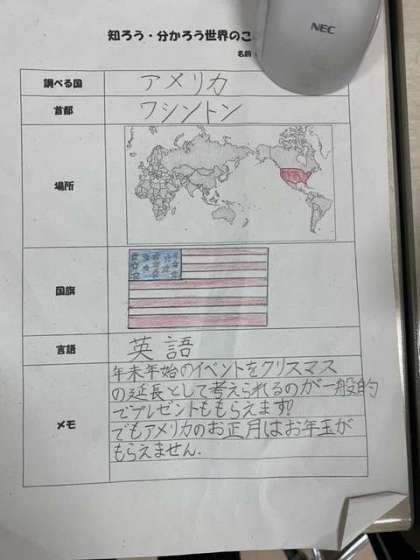 知ろう・分かろう世界のこ
NEC
名前
調べる国 アメリカ
首都 ワシントン
場所
国旗
言語 英語
メモ
年末年始のイベントをクリスマス
の延長として考えられるのが一般的
でプレゼントももらえます!
でもアメリカのお正月はお年玉が
もらえません.